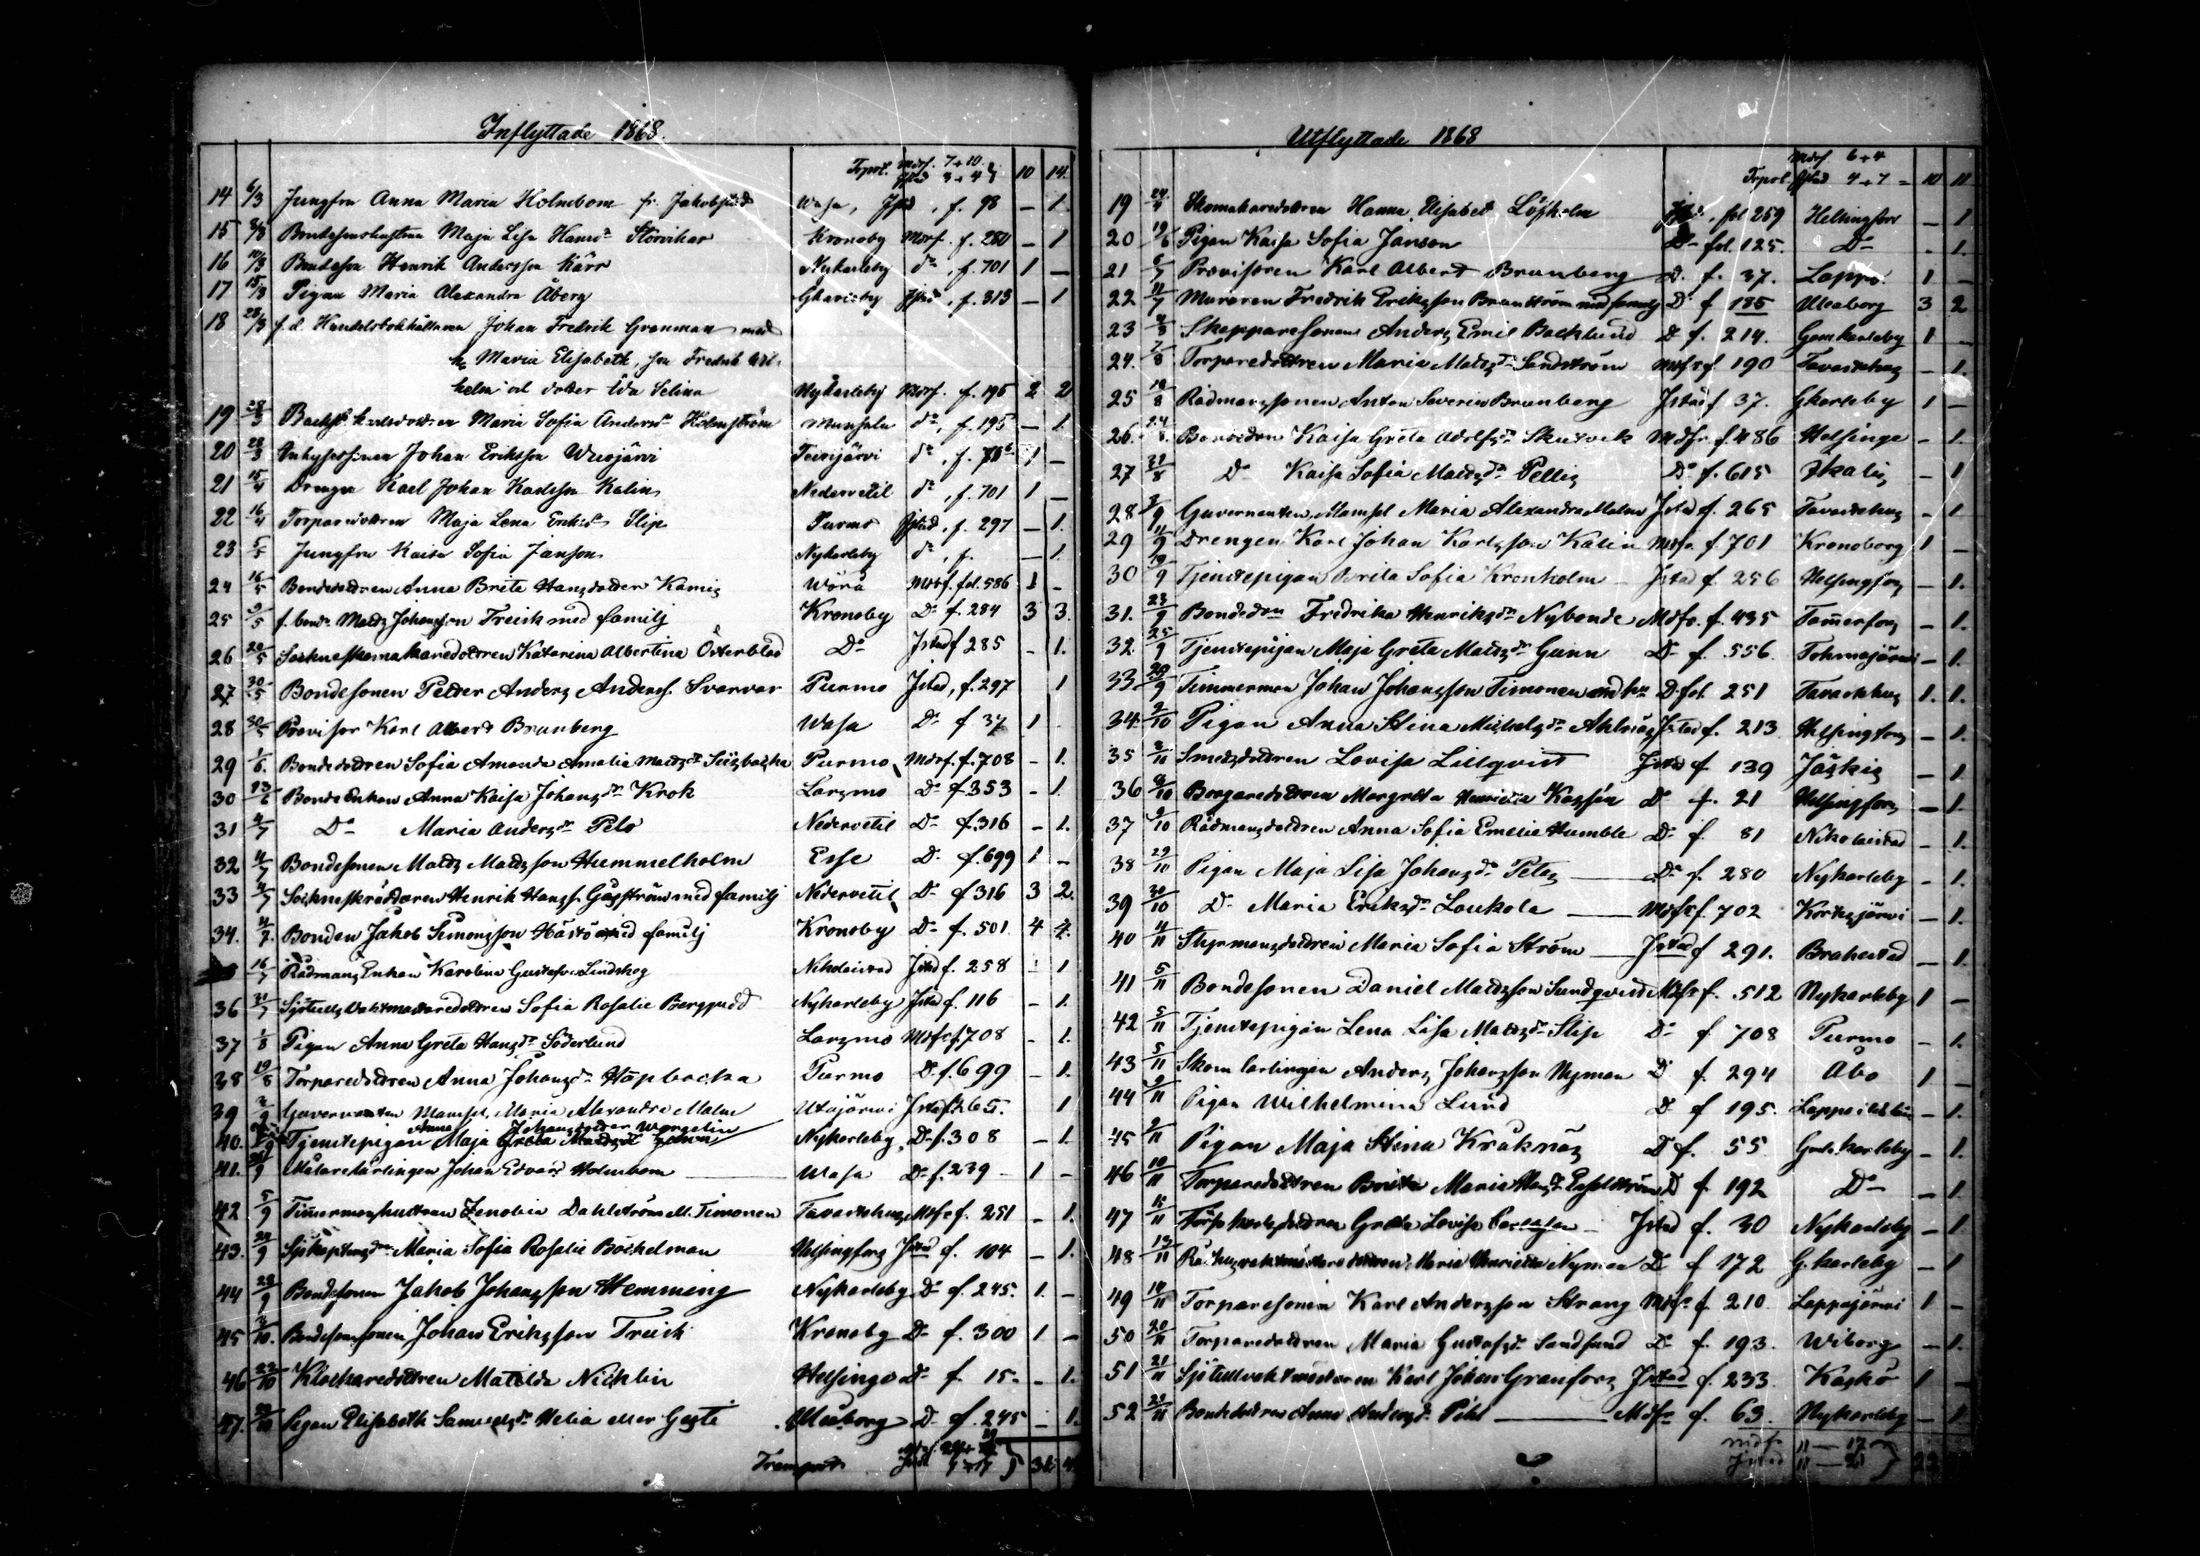 Inflyttade 1868.
Trprt. Mdrf. 7+10. 10 14.
Jstad 3+4
14 6/3 Jungfru Anna Maria Holmbom fr. Jakobstad Wasa, Jstad, f. 98 — 1.
15 8/3 Maja Lisa Storvikar Kronoby Mdrf. f. 280 — 1
16 Bondeson Henrik Andersson Kärr Nykarleby do, f. 701 1 —
17 15/3 Pigan Maria Alexandra Åberg Gkarleby Jstad, f. 313 — 1
18 28/3 f.d. Handelsbokhållaren Johan Fredrik Granman med
h. Maria Elisabeth, son Fredrik Wil-
helm och dotter Ida Selina Nykarleby Mdrf. f. 195 2 2
19 28/3 Maria Sofia Andersdr Holmström Munsala do, f. 195 — 1.
20 28/3 Johan Eriksson Wuojärvi Teerijärvi do, f. 1 —
21 15/4 Drengen Karl Johan Karlsson Kalin Nedervetil do, f. 701 1 —
22 16/4 Torparedottren Maja Lena Eriksdr Slip Purmo Jstad, f. 297 — 1.
23 5/5 Jungfru Kaisa Sofia Janson Nykarleby do, f. — 1.
24 16/5 Bondedottren Anna Brita Hansdotter Kamis Wörå Mdrf. fol. 586 1 -
25 9/5 f. bond. Matts Johansson Treisk med familj Kronoby Do f. 284 3 3.
26 20/5 Sockneskomakaredottren Katarina Albertina Österblad Do Jstad f 285 - 1.
27 30/5 Bondesonen Petter Anders Anderss. Svarvar Purmo Jstad, f. 297 1
28 30/5 Provisor Karl Albert Brunberg Wasa Do f 37 1
29 1/6. Bondedottren Sofia Amanda Amalia Mattsdr Purmo Mdrf. f. 708 - 1.
30 13/6 Bonde Enkan Anna Kaisa Johansdr Krok Larsmo Do f. 353 - 1.
31 4/7 Do Maria Andersdr Pelo Nedervetil Do f. 316 - 1.
32 4/7 Bondesonen Matts Mattsson Hummelholm Esse Do f. 699 1 -
33 4/7 Sockneskräddaren Henrik Hanss. Gåsström med familj Nedervetil Do f 316 3 2.
34. 4/7. Bonden Jakob Simonsson Hästö med familj Kronoby Do f. 501. 4 4.
16/7 Rådmans Enkan Karolina Gustafva Lindskog Nikolaistad Jstad f. 258 - 1
36 31/7 Sjötulls Vaktmästaredottren Sofia Rosalie Bergqvist Nykarleby Jstad f. 116 - 1.
37 1/8 Pigan Anna Greta Hansdr Söderlund Larsmo Mdfr f. 708 - 1.
38 19/8 Torparedottren Anna Johansdr Håpbacka Purmo Do f. 699 - 1.
39 2/9 Guvernanten Mamsel. Maria Alexandra Malm Utajärvi Jstad f. 265. 1
Anna Johansdotter Worgelin
40. Tjenstepigan Maja Greta Mattsdr Nykarleby Do f. 308 - 1.
41. /9 Målarelärlingen Johan Edvard Holmbom Wasa Do f. 239 - 1 -
42 5/9 Timmermanshustrun Zenobia Dahlström ell. Timonen Tavastehus Mdfr f. 251 - 1.
43. 22/9 Sjökaptensdr Maria Sofia Rosalie Böckelman Helsingfors Jstad f. 104 - 1.
44 28/9 Bondesonen Jakob Johansson Hemming Nykarleby Do f. 245. 1. -
45 /10. Bondesonsonen Johan Eriksson Treisk Kronoby Do f. 300 1 -
46 22/10 Klockaredottren Matilda Nicklin Helsinge Do f. 15. - 1.
47. Pigan Elisabeth Samuelsdr Uleåborg Do f. 245 - 1
Transport
Utflyttade 1868
Mdrf. 6+4
Trprt Jstad 4+7 = 10 11
19 24/4 Skomakaredottren Hanna Elisabet Löfholm Jstad, fol 259 Helsingfors - 1
20 19/6 Pigan Kaisa Sofia Janson Do fol. 125. Do - 1.
21 6/7 Provisoren Karl Albert Brunberg Do f. 37. Lappo. 1 -
22 11/7 Muraren Fredrik Eriksson Brunström med familj Do f 185 Uleaborg 3 2
23 4/8 Skepparesonen Anders Emil Backlund Do f. 214. Gamkarleby 1 -
24. 7/8 Torparedottren Maria Mattsdr Sandström Mdfr f 190 Tavastehus - 1.
25 18/8 Rådmanssonen Anton Severin Brunberg Jstad f 37. Gkarleby 1 -
26. 24/8. Bondedon Kaisa Greta Adolfsdr Skutvik Mdfr f. 486 Helsinge - 1.
27 31/8 Do Kaisa Sofia Mattsdr Pellis Do f. 615 Ikalis - 1
28 2/9 Guvernanten Mamsel Maria Alexandra Malm Jstad f. 265 Tavastehus - 1.
29 11/9 Drengen Karl Johan Karlsson Kalin Mdfr. f. 701 Kronoborg 1 -
30 19/9 Tjenstepigan Brita Sofia Kronholm Jstad f. 256 Helsingfors - 1.
31. 23/9 Bondedon Fredrika Henriksdr Nybonde Mdfr. f. 435 Tammerfors - 1.
32. 25/9 Tjenstepigan Maja Greta Mattsdr Gunn Do f. 556. Tohmajärvi - 1.
33 29/9 Timmerman Johan Johansson Timonen med hu Do fol. 251 Tavastehus 1. 1.
34. 2/10 Pigan Anna Stina Michelsdr Ahlnäs Jstad f. 213 Helsingfors - 1.
35 2/10 Smedsdottren Lovisa Lillqvist Jstad f 139 Jäskis - 1
36 8/10 Borgaredottren Margreta Henrietta Do f. 21 Helsingfors - 1
37 9/10 Rådmansdottren Anna Sofia Emelia Humble Do f 81 Nikolaistad - 1.
38 29/10 Pigan Maja Lisa Johansdr Petas Do f. 280 Nykarleby - 1.
39 30/10 Do Maria Eriksdr Laukola Mdfr f 702 Kortesjärvi - 1.
40 4/11 Styrmansdottren Maria Sofia Ström Jstad f 291. Brahestad - 1.
41 5/11 Bondesonen Daniel Mattsson Sundqvist Mdfr f. 512 Nykarleby 1 -
42 5/11 Tjenstepigan Lena Lisa Mattsdr Slip Do f 708 Purmo - 1.
43 5/11 Skom. lärlingen Anders Johansson Nyman Do f. 294 Åbo 1 -
44 9/11 Pigan Wilhelmina Lund Do f 195. Lappo - 1.
45 9/11 Pigan Maja Stina Kråknäs Do f. 55 Gml. karleby - 1.
46 10/11 Torparedottren Brita Maria Hansdr Do f. 192 Do - 1.
47 /11 Greta Lovisa Jstad f. 30 Nykarleby - 1.
48 /11 Maria Henrietta Nyman Do f 172 G. karleby - 1.
49 /11 Torparesonen Karl Andersson Strang Mdfr f. 210. Lappajärvi 1 -
50 20/11 Torparedottren Maria Gustafsdr Sandsund Do f. 193. Wiborg - 1.
51 21/11 Sjötullvaktmästaren Karl Johan Granfors Jstad f. 233. Kaskö 1 -
52 /11 Bondedottren Anna Andersdr Pihl Mdfr f. 63. Nykarleby - 1
Mdfr 11 — 17
Jstad 11 —